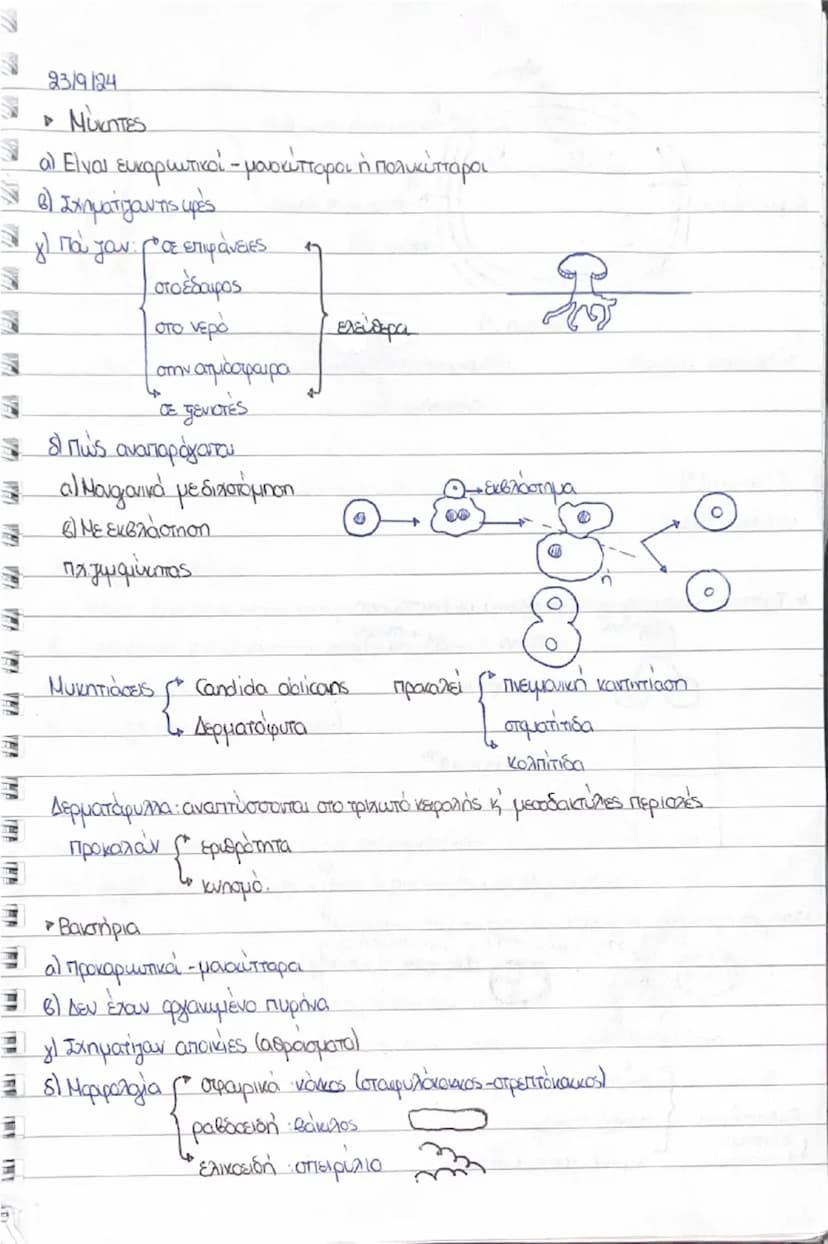 23/9/24
▸ Μύκητες
α) Είναι ευκαρυωτικοί - μονοκύτταροι ή πολυκύτταροι
β) Σχηματίζουν τις υφές
γ) Πού ζουν: σε επιφάνειες
στο έδαφος
στο νερό
στην ατμόσφαιρα
ελεύθερα
σε ξενιστές
δ) Πώς αναπαράγονται
α) Μονογονικά με διχοτόμηση
β) Με εκβλάστηση
→ εκβλάστημα
πχ ζυμομύκητας
ή
Μυκητιάσεις
Candida albicans
Δερματόφυτα
προκαλεί
πνευμονική καντιντίαση
στοματίτιδα
κολπίτιδα
Δερματόφυλλα: αναπτύσσονται στο τριχωτό κεφαλής κ' μεσοδακτύλιες περιοχές
προκαλούν
εριθρότητα
κνησμό.
▸ Βακτήρια
α) Προκαρυωτικοί - μονοκύτταροι
β) Δεν έχουν οργανωμένο πυρήνα
γ) Σχηματίζουν αποικίες (αθροίσματα)
δ) Μορφολογία
σφαιρικά: κόκκος (σταφυλόκοκκος - στρεπτόκοκκος)
ραβδοειδή: βάκιλος
ελικοειδή: σπειρύλιο